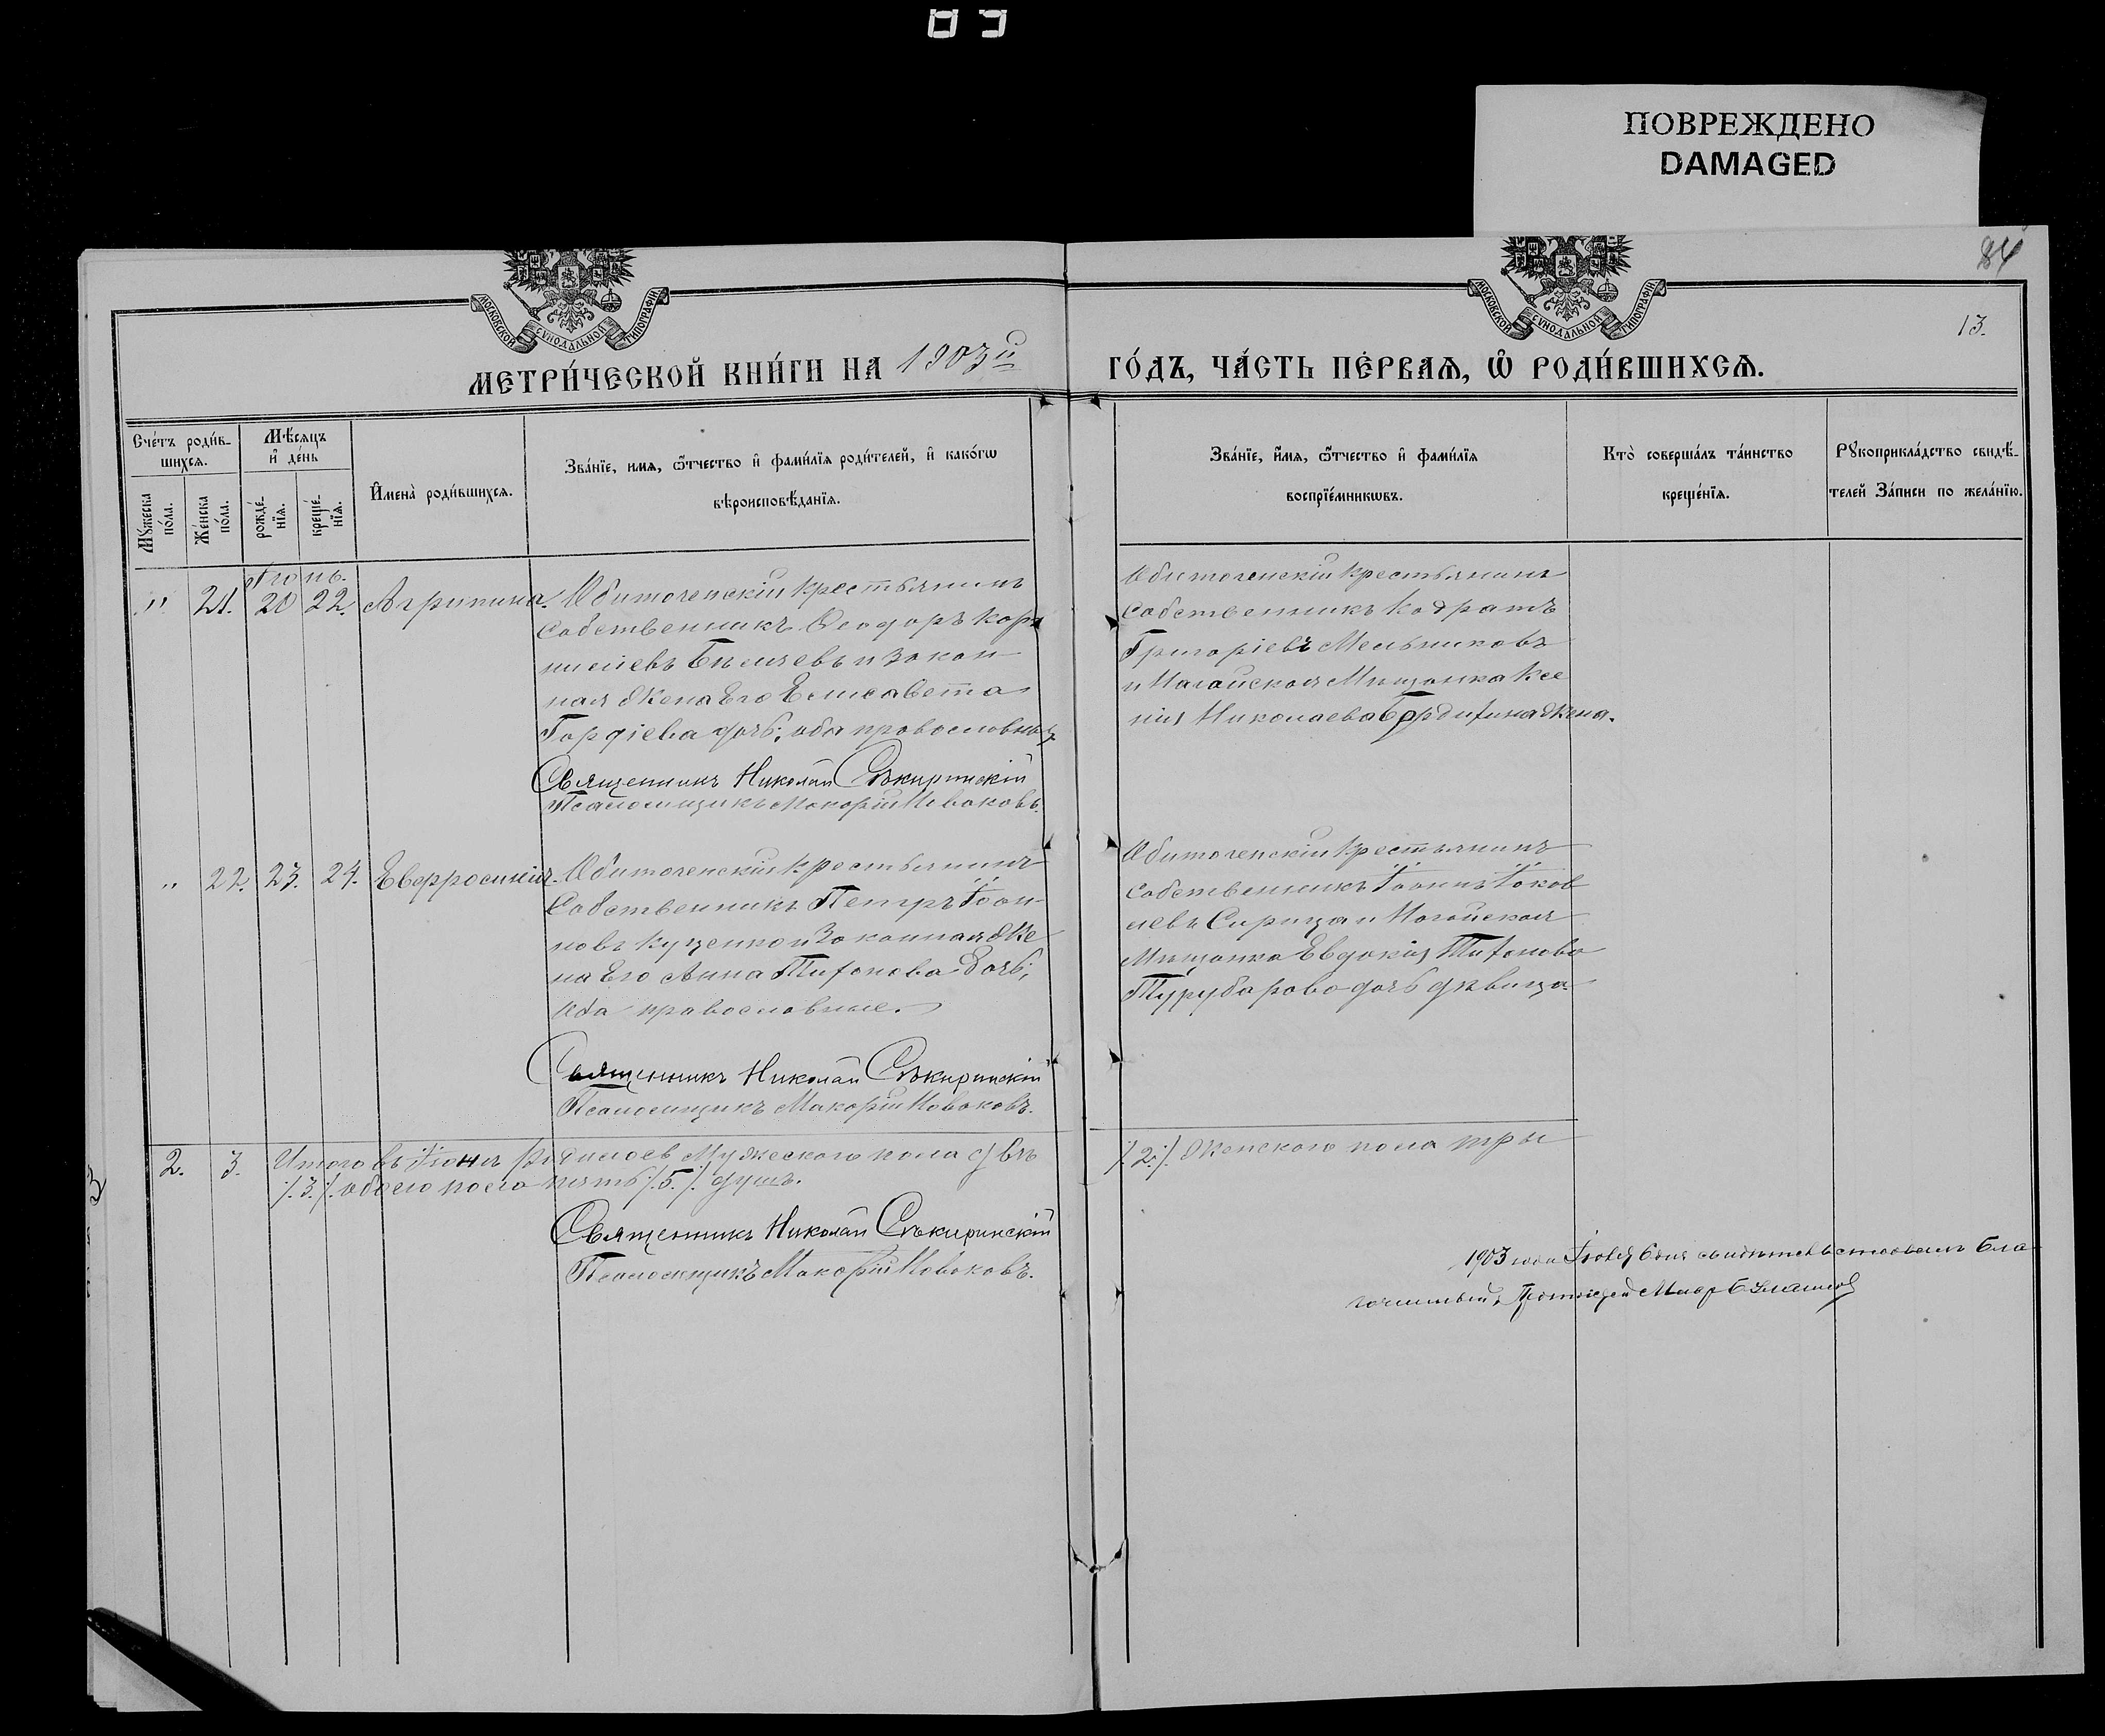 ПОВРЕЖДЕНО
DAMAGED
84
13.
МОСКОВСКОЙ СѴНОДАЛЬНОЙ ТИПОГРАФІИ
МОСКОВСКОЙ СѴНОДАЛЬНОЙ ТИПОГРАФІИ
МЕТРИ́ЧЕСКОЙ КНИ́ГИ НА 1903й
ГО́ДЪ, ЧА́СТЬ ПЕ́РВАѦ, Ѽ РОДИ́ВШИХСѦ.
Сче́тъ роди́в-
шихсѧ.
Мꙋ́жеска по́ла.
Же́нска по́ла.
Мѣ́сѧцъ
и҆ де́нь
рожде́-
нїѧ.
креще́-
нїѧ.
И҆мена̀ роди́вшихсѧ.
Зва́нїе, имѧ, ѻ҆́тчество и҆ фами́лїѧ роди́телей, и҆ како́гѡ
вѣроисповѣ́данїѧ.
Зва́нїе, и҆́мѧ, ѻ҆́тчество и҆ фами́лїѧ
воспрїе́мникѡвъ.
Кто̀ соверша́лъ та́инство
креще́нїѧ.
Рꙋкоприкла́дство свидѣ́-
телей За́писи по жела́нїю.
Іюнь.
" 21. 20 22. Агрипина.
Обиточенскій крестьянинъ
собственникъ Ѳеодоръ Кор
ниліевъ Бѣляевъ и закон
ная жена Его Елисавета
Гордіева дочь; оба православные.
Священникъ Николай Сѣкиринскій
Псаломщикъ Макорій Новаковъ.
Обиточенскій Крестьянинъ
собственникъ Кодратъ
Григоріевъ Мельниковъ
и Ногайская Мѣщанка Ксе
нія Николаева жена.
" 22. 23. 24. Евфросинія.
Обиточенскій крестьянинъ
Собственникъ Петръ Іоан-
новъ Куценко и Законная Же
на Его Анна Тихонова дочь;
оба православные.
Священникъ Николай Сѣкиринскій
Псаломщикъ Макорій Новаковъ.
Обиточенскій Крестьянинъ
собственникъ Іоаннъ Іаков
левъ Сирица и Ногайская
Мѣщанка Евдокія Тихонова
Турубарова дочь дѣвица.
2. 3. Итого въ Іюнѣ родилось Мужескаго пола двѣ
/.2./. Женскаго пола три
/.3./. обоего пола пять /.5./. душъ.
Священникъ Николай Сѣкиринскій
Псаломщикъ Макорій Новаковъ.
1903 года Іюля 6 дня свидѣтельствовалъ Бла
гочинный, Протоіерей